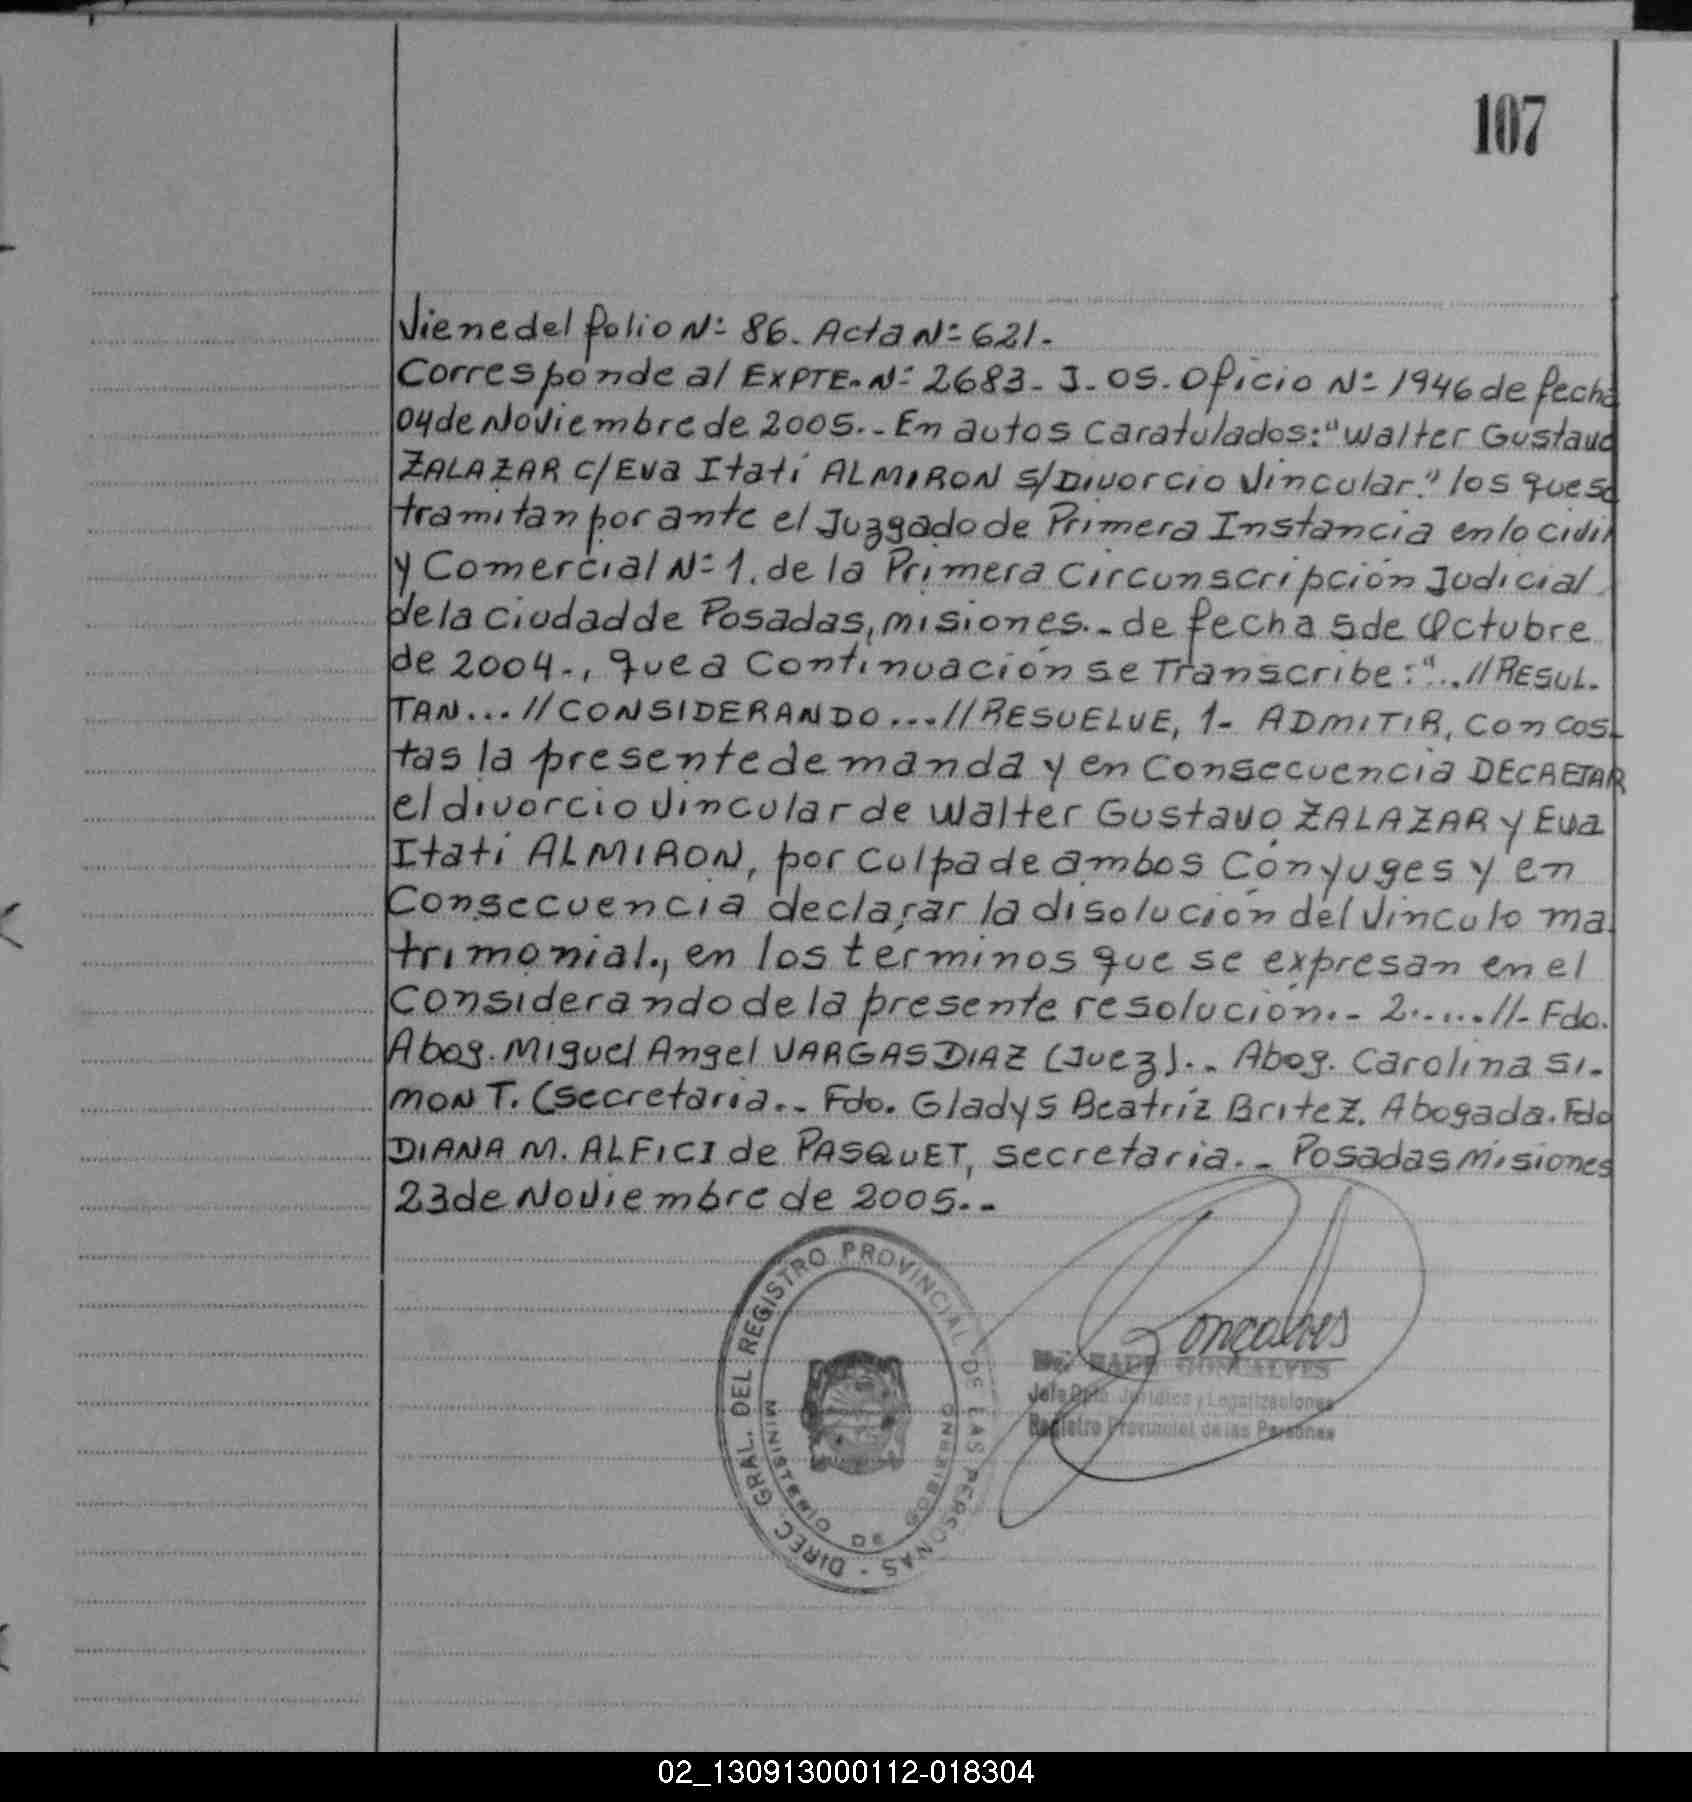 107
Viene del folio N:- 86. Acta N:- 621.-
Corresponde al EXPTE. N:- 2683- J- 05. Oficio N:- 1946 de fecha
04 de Noviembre de 2005..- En autos Caratulados: "Walter Gustavo
ZALAZAR c/Eva Itatí ALMIRON s/Divorcio Vincular." los que se
tramitan por ante el Juzgado de Primera Instancia en lo Civil
y Comercial N:- 1. de la Primera Circunscripción Judicial
de la Ciudad de Posadas, Misiones..- de fecha 5 de Octubre
de 2004-., que a Continuación se Transcribe: "...//RESUL-
TAN...//CONSIDERANDO...//RESUELVE, 1- ADMITIR, con cos-
tas la presente demanda y en Consecuencia DECRETAR
el divorcio Vincular de Walter Gustavo ZALAZAR y Eva
Itatí ALMIRON, por culpa de ambos Cónyuges y en
Consecuencia declarar la disolución del Vinculo ma
trimonial., en los terminos que se expresan en el
Considerando de la presente resolución.- 2......//- Fdo.
Abog. Miguel Angel VARGAS DIAZ (Juez)..- Abog. Carolina SI-
MON T. (Secretaria..- Fdo. Gladys Beatríz Britez. Abogada. Fdo
DIANA M. ALFICI de PASQUET, secretaria..- Posadas Misiones
23 de Noviembre de 2005..-
DIREC. GRAL. DEL REGISTRO PROVINCIAL DE LAS PERSONAS -
MINISTERIO DE GOBIERNO
Goncalves
GONCALVES
Jefe Dpto. Jurídico y Legalizaciones
Registro Provincial de las Personas
02_130913000112-018304